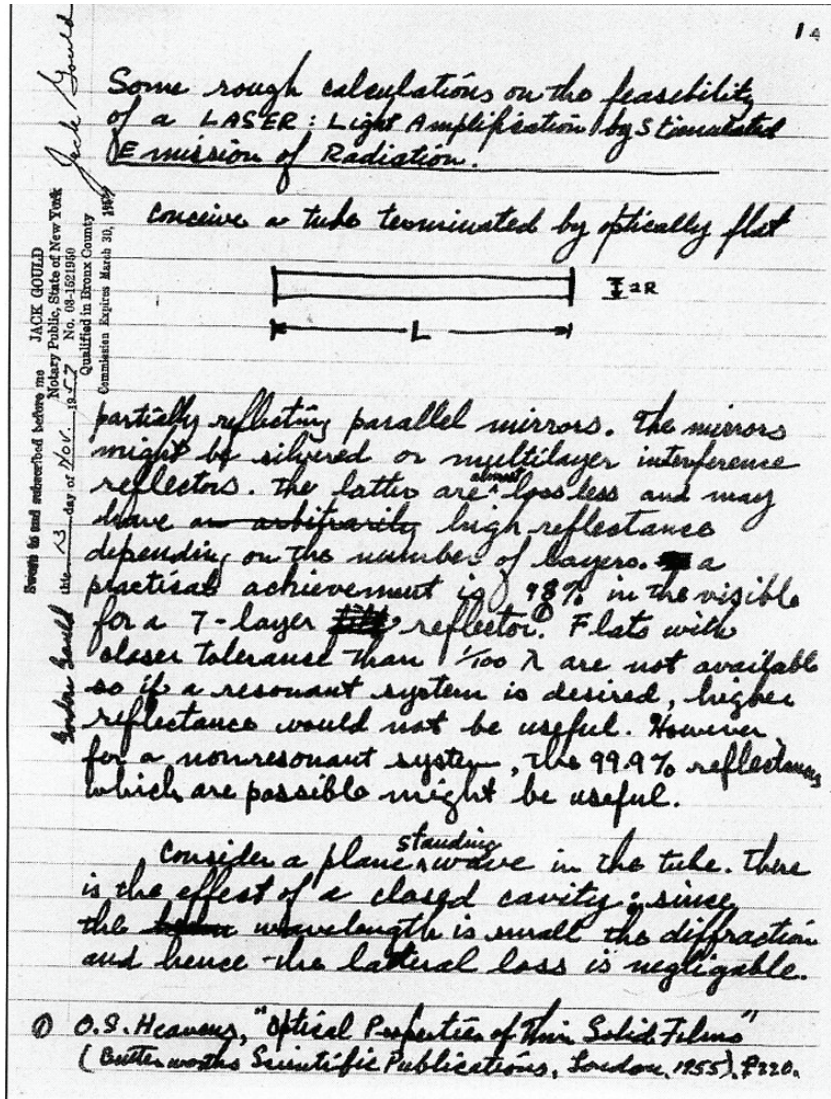 1
Some rough calculations on the feasibility
of a LASER: Light Amplification by Stimulated
Emission of Radiation.
conceive a tube terminated by optically flat
2R
L
partially reflecting parallel mirrors. The mirrors
might be silvered or multilayer interference
reflectors. The latter are almost lossless and may
have an arbitrarily high reflectance
depending on the number of layers. a
practical achievement is 98% in the visible
for a 7-layer reflector.① Flats with
closer tolerance than 1/100 λ are not available
so if a resonant system is desired, higher
reflectance would not be useful. However,
for a nonresonant system, the 99.9% reflectances
which are possible might be useful.
Consider a plane standing wave in the tube. There
is the effect of a closed cavity; since
the wavelength is small the diffraction
and hence the lateral loss is negligable.
① O.S. Heavens, "Optical Properties of Thin Solid Films"
(Butterworths Scientific Publications, London, 1955), p220.
Jack Gould
JACK GOULD
Notary Public, State of New York
No. 03-1521950
Qualified in Bronx County
Commission Expires March 30, 19
Sworn to and subscribed before me
this 13 day of Nov. 1957
Gordon Gould